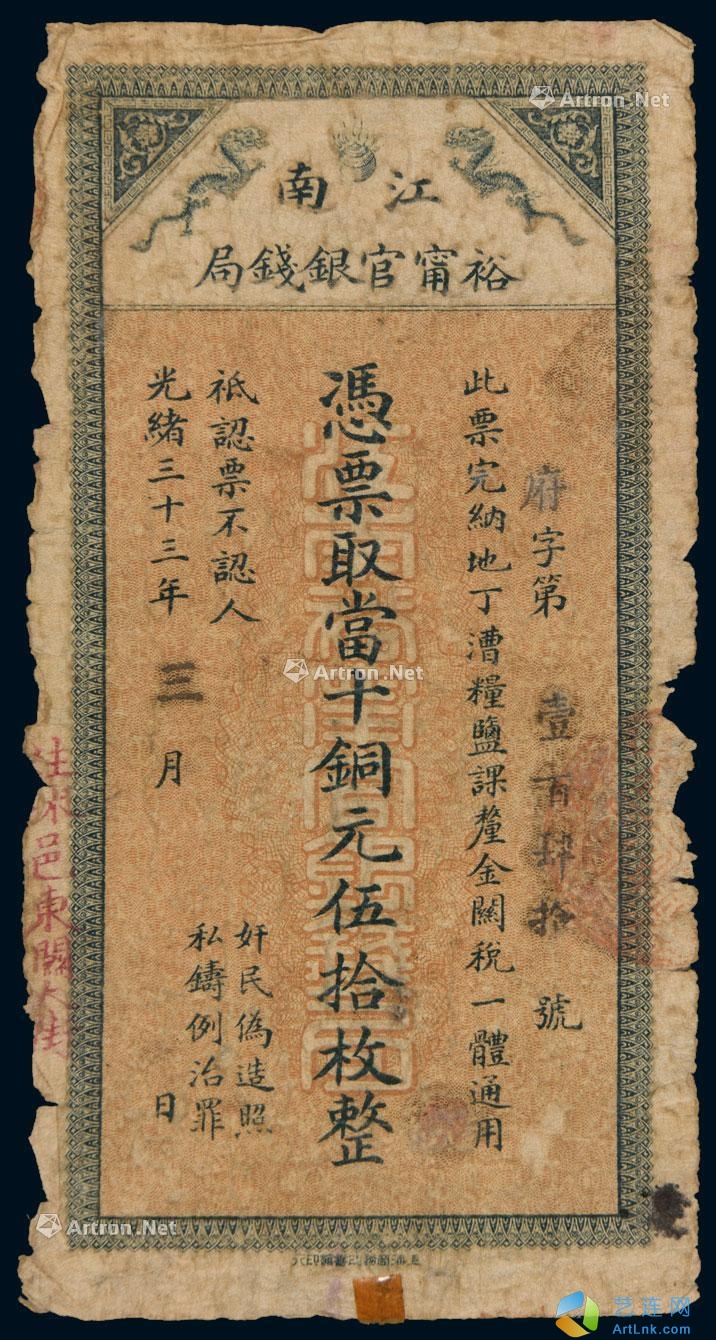 江南
裕甯官銀錢局
府字第壹百肆拾號
此票完納地丁漕糧鹽課釐金關稅一體通用
憑票取當十銅元伍拾枚整
祇認票不認人
光緒三十三年三月 日
奸民偽造照
私鑄例治罪
邑東關大街
Artron.Net
Artron.Net
Artron.Net
艺连网
ArtLnk.com